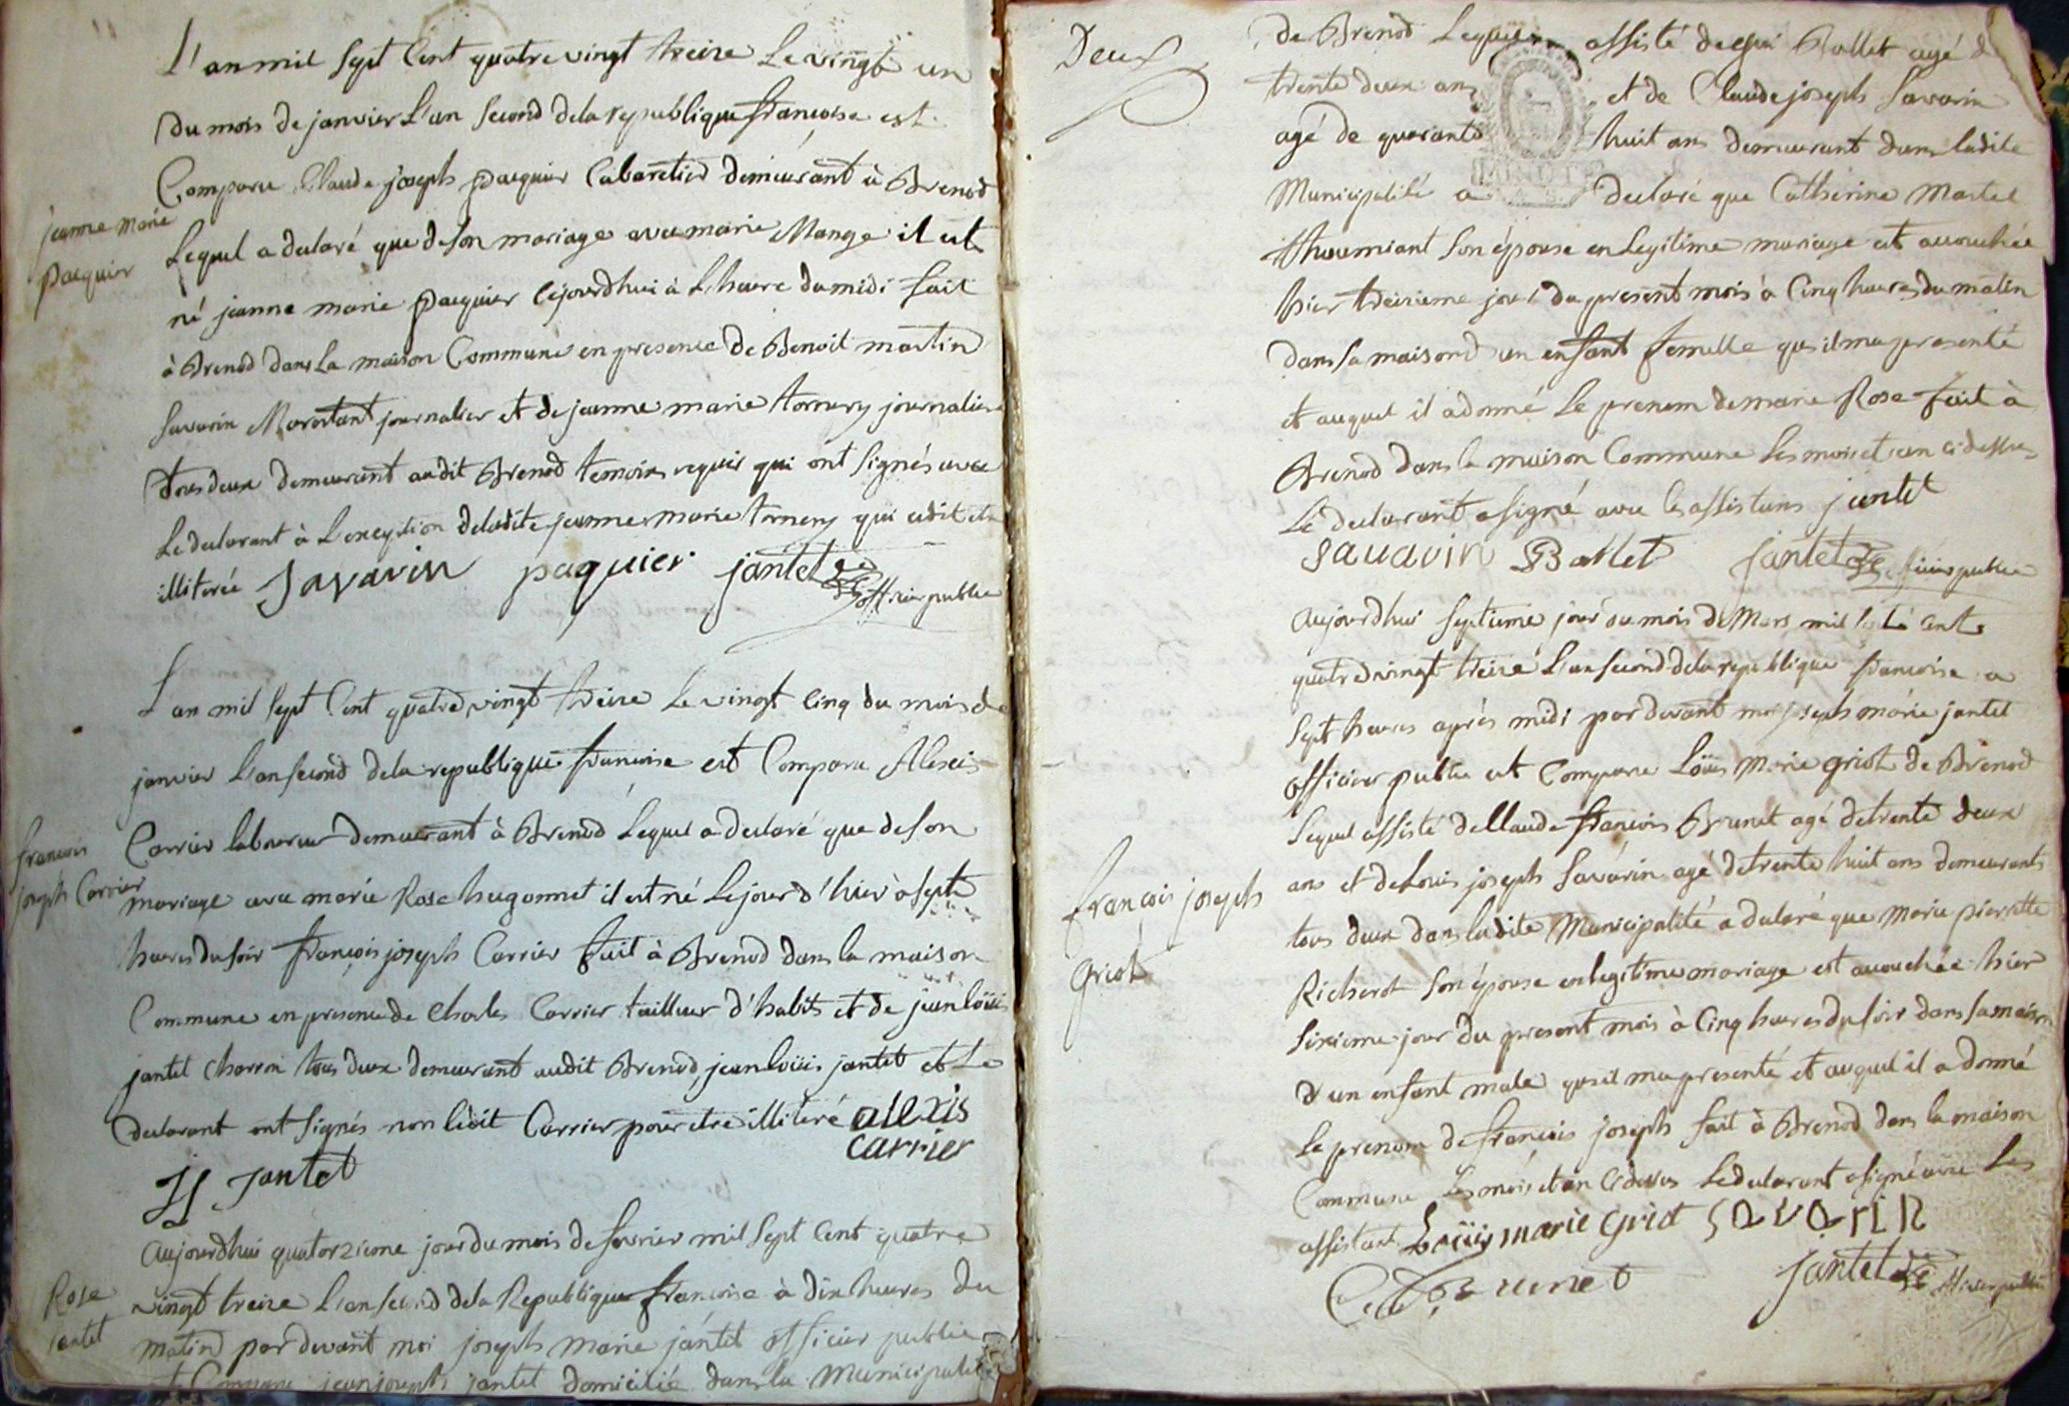 L'an mil sept Cent quatre vingt treize Le vingt un
du mois de janvier L'an second dela republique francoise est
Comparu Claude joseph pacquier Cabaretier demeurant à Brenod
jeanne marie
pacquier
Lequel a declaré que de son mariage avec marie Mange il est
né jeanne marie pacquier cejourdhui à L'heure du midi fait
à Brenod dans La maison Commune en presence de Benoit martin
Savarin journalier et de jeanne marie tornery journaliere
tous deux demeurant audit Brenod temoins requis qui ont signés avec
Le declarant à L'exception deladite jeanne marie tornery qui adit etre
illiterée Savarin paquier jantet officier public
L'an mil sept Cent quatre vingt treize Le vingt Cinq du mois de
janvier L'an second dela republique francoise est Comparu Alexis
francois
joseph Carrier
Carrier laboureur demeurant à Brenod Lequel a declaré que de son
mariage avec marie Rose hugonnet il est né Le jour d'hier à sept
heures du soir françois joseph Carrier fait à Brenod dans la maison
Commune en presence de Charles Carrier tailleur d'habits et de jean loüis
jantet charron tous deux demeurant audit Brenod, jean loüis jantet et Le
declarant ont signés non ledit Carrier pour etre illiteré alexis
carrier
jl jantet
Aujourdhui quatorzieme jour du mois de fevrier mil sept Cent quatre
Rose
jantet
vingt treize L'an second dela Republique francoise à dix heures du
matin par devant moi joseph marie jantet officier public
est Comparu jean joseph jantet domicilié dans la Municipalité
Deux
de Brenod Lequel assisté de Ballet agé de
trente deux ans et de Claude joseph Savarin
agé de quarante huit ans demeurant dans ladite
Municipalité a declaré que Catherine Martel
son épouse en Legitime mariage est accouchée
hier treizieme jour du present mois à Cinq heures du matin
dans sa maison d'un enfant femelle qu'il ma presenté
et auquel il a donné Le prenom de marie Rose fait à
Brenod dans la maison Commune Les mois et an ci dessus
Le declarant a signé avec les assistans jantet
Savavin Ballet jantet officier public
Aujourdhui septieme jour du mois de Mars mil sept cent
quatre vingt treize L'an second dela republique francoise a
sept heures après midi par devant moi joseph marie jantet
officier public est Comparu Loüis Marie griot de Brenod
Lequel assisté de Claude françois Brunet agé de trente deux
françois joseph
griot
ans et de Louis joseph Savarin agé de trente huit ans demeurants
tous deux dans ladite Municipalité a declaré que Marie pierrette
Richerot son épouse en legitime mariage est accouchée hier
sixieme jour du present mois à Cinq heures du soir dans sa maison
d'un enfant male qu'il ma presenté et auquel il a donné
Le prenom de francois joseph fait à Brenod dans la maison
Commune Les mois et an ci dessus Le declarant a signé avec Les
assistant Loüis marie griot Savarin
Brunet jantet officier public